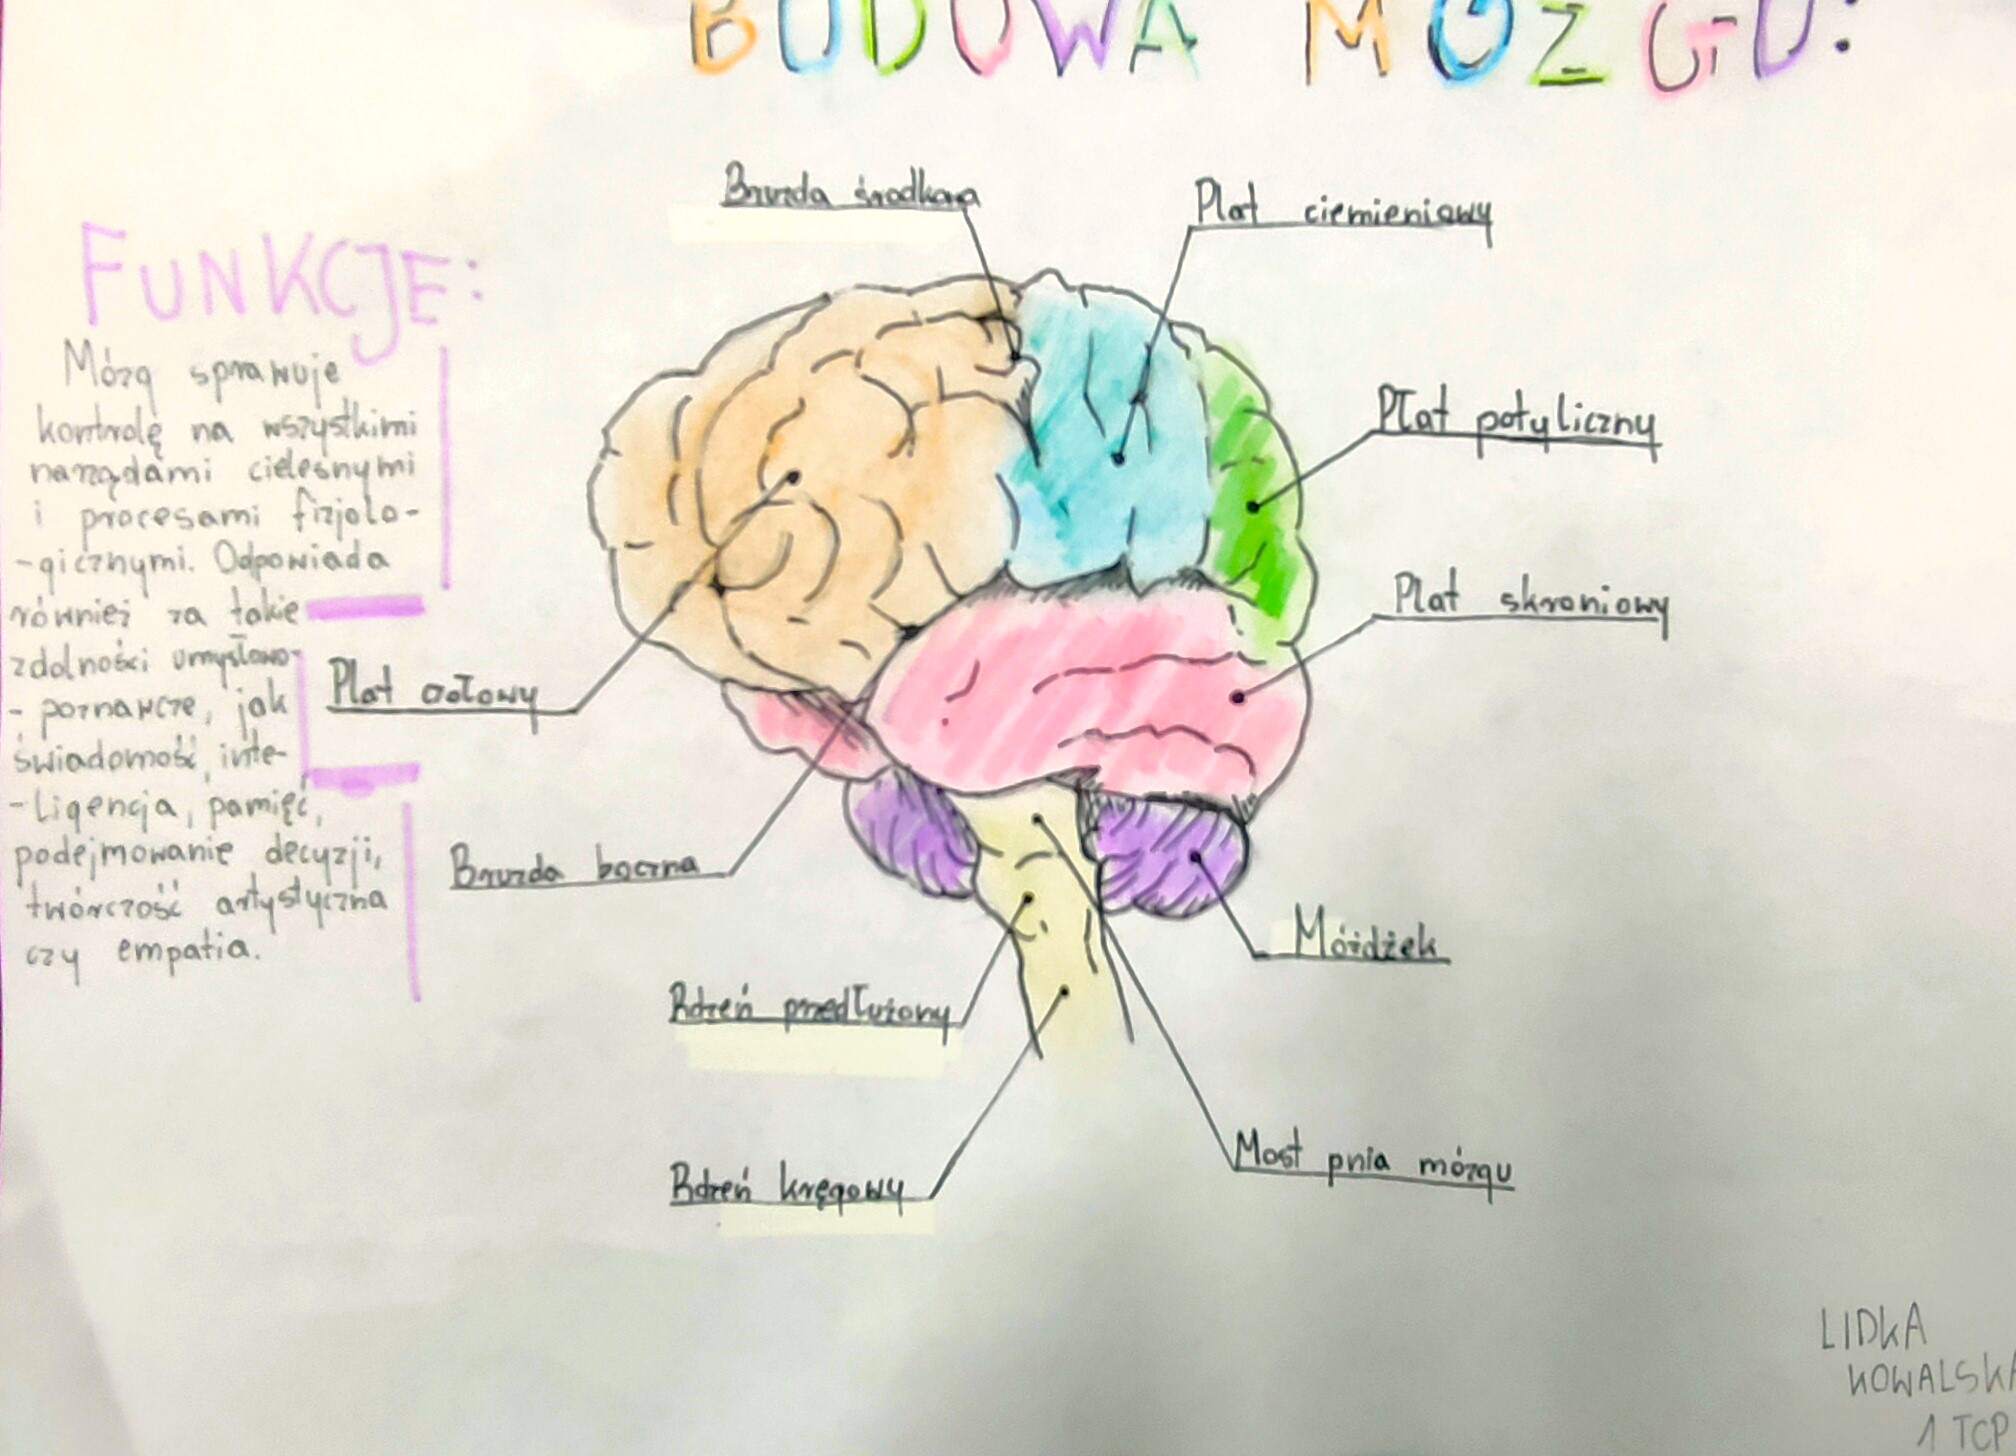 BUDOWA MÓZGU:
Bruzda środkowa
Płat ciemieniowy
FUNKCJE:
Mózg sprawuje
kontrolę na wszystkimi
narządami cielesnymi
i procesami fizjolo-
-gicznymi. Odpowiada
również za takie
zdolności umysłowo-
- poznawcze, jak
świadomość, inte-
-ligencja, pamięć,
podejmowanie decyzji,
twórczość artystyczna
czy empatia.
Płat potyliczny
Płat skroniowy
Płat czołowy
Bruzda boczna
Móżdżek
Rdzeń przedłużony
Most pnia mózgu
Rdzeń kręgowy
LIDKA
KOWALSKA
1 TCP